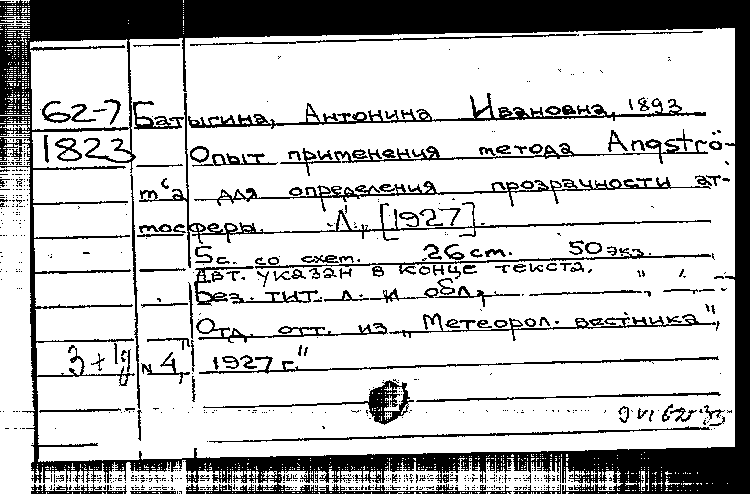 62-7 Батыгина, Антонина Ивановна, 1893
1823 Опыт применения метода Angströ-
m'a для определения прозрачности ат-
мосферы. Л., [1927].
5с. со схем. 26 cm. 50 экз.
Авт. указан в конце текста.
Без. тит. л. и обл.
Отд. отт. из „Метеорол. вестника",
3+1д N 4, 1927 г."